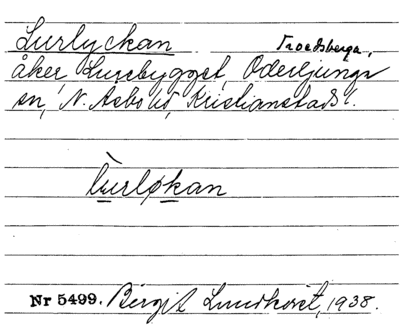 Lurlyckan Troedsberga,
åker, Lurebygget, Oderljunga
sn, N. Åsbo hd, Kristianstads l.
lùrløkan
Nr 5499. Birgit Lundkvist, 1938.